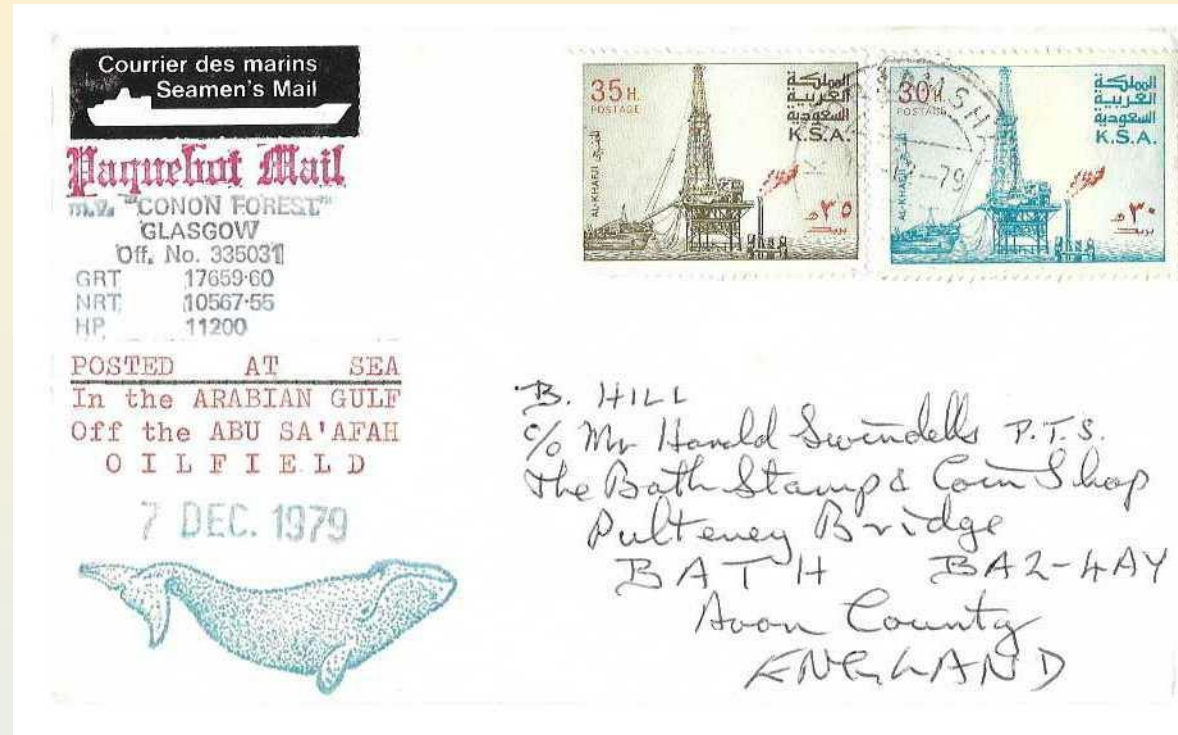 Courrier des marins
Seamen's Mail
Paquebot Mail
m.v. "CONON FOREST"
GLASGOW
Off. No. 335031
GRT 17659·60
NRT 10567·55
HP 11200
POSTED AT SEA
In the ARABIAN GULF
Off the ABU SA'AFAH
OILFIELD
7 DEC. 1979
35H.
POSTAGE
المملكة
العربية
السعودية
K.S.A.
AL-KHAFJI الخفجي
٣٥ هـ
بريد
30H.
POSTAGE
المملكة
العربية
السعودية
K.S.A.
AL-KHAFJI الخفجي
٣٠ هـ
بريد
-79
B. HILL
c/o Mr Harold Swindells P.T.S.
The Bath Stamp & Coin Shop
Pulteney Bridge
BATH BA2-4AY
Avon County
ENGLAND